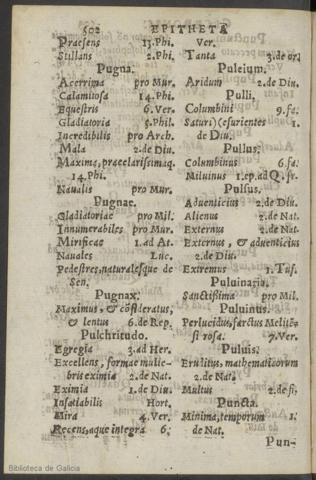 502 EPITHETA
Praesens 13.Phi.
Stillans 2.Phi.
Pugna.
Acerrima pro Mur.
Calamitosa 14.Phi.
Equestris 6.Ver.
Gladiatoria 5.Phil.
Incredibilis pro Arch.
Mala 2.de Diu.
Maxima, praeclarissimaq.
14.Phi.
Naualis pro Mur.
Pugnae.
Gladiatoriae pro Mil.
Innumerabiles pro Mur.
Mirificae 1.ad At.
Nauales Luc.
Pedestres, naturalesque de
Sen.
Pugnax.
Maximus, & cõsideratus,
& lentus 6.de Rep.
Pulchritudo.
Egregia 3.ad Her.
Excellens, formae mulie-
bris eximia 2.de Nat.
Eximia 1.de Diu.
Insatiabilis Hort.
Mira 4.Ver.
Recens, aque integra 6.
Ver.
Tanta 3.de or.
Puleium.
Aridum 2.de Diu.
Pulli.
Columbini 9.fa.
Saturi) (esurientes 1.
de Diu.
Pullus.
Columbinus 6.fa.
Miluinus 1.ep.ad Q.fr.
Pulsus.
Aduenticius 2.de Diu.
Alienus 2.de Nat.
Externus 2.de Nat.
Externus, & aduenticius
2.de Diu.
Extremus 1.Tus.
Puluinaria.
Sanctissima pro Mil.
Puluinus.
Perlucidus, farctus Melitẽ-
si rosa. 7.Ver.
Puluis.
Eruditus, mathematicorum
2.de Nat.
Multus 2.de fi.
Puncta.
Minima, temporum 1.
de Nat.
Pun-
Biblioteca de Galicia